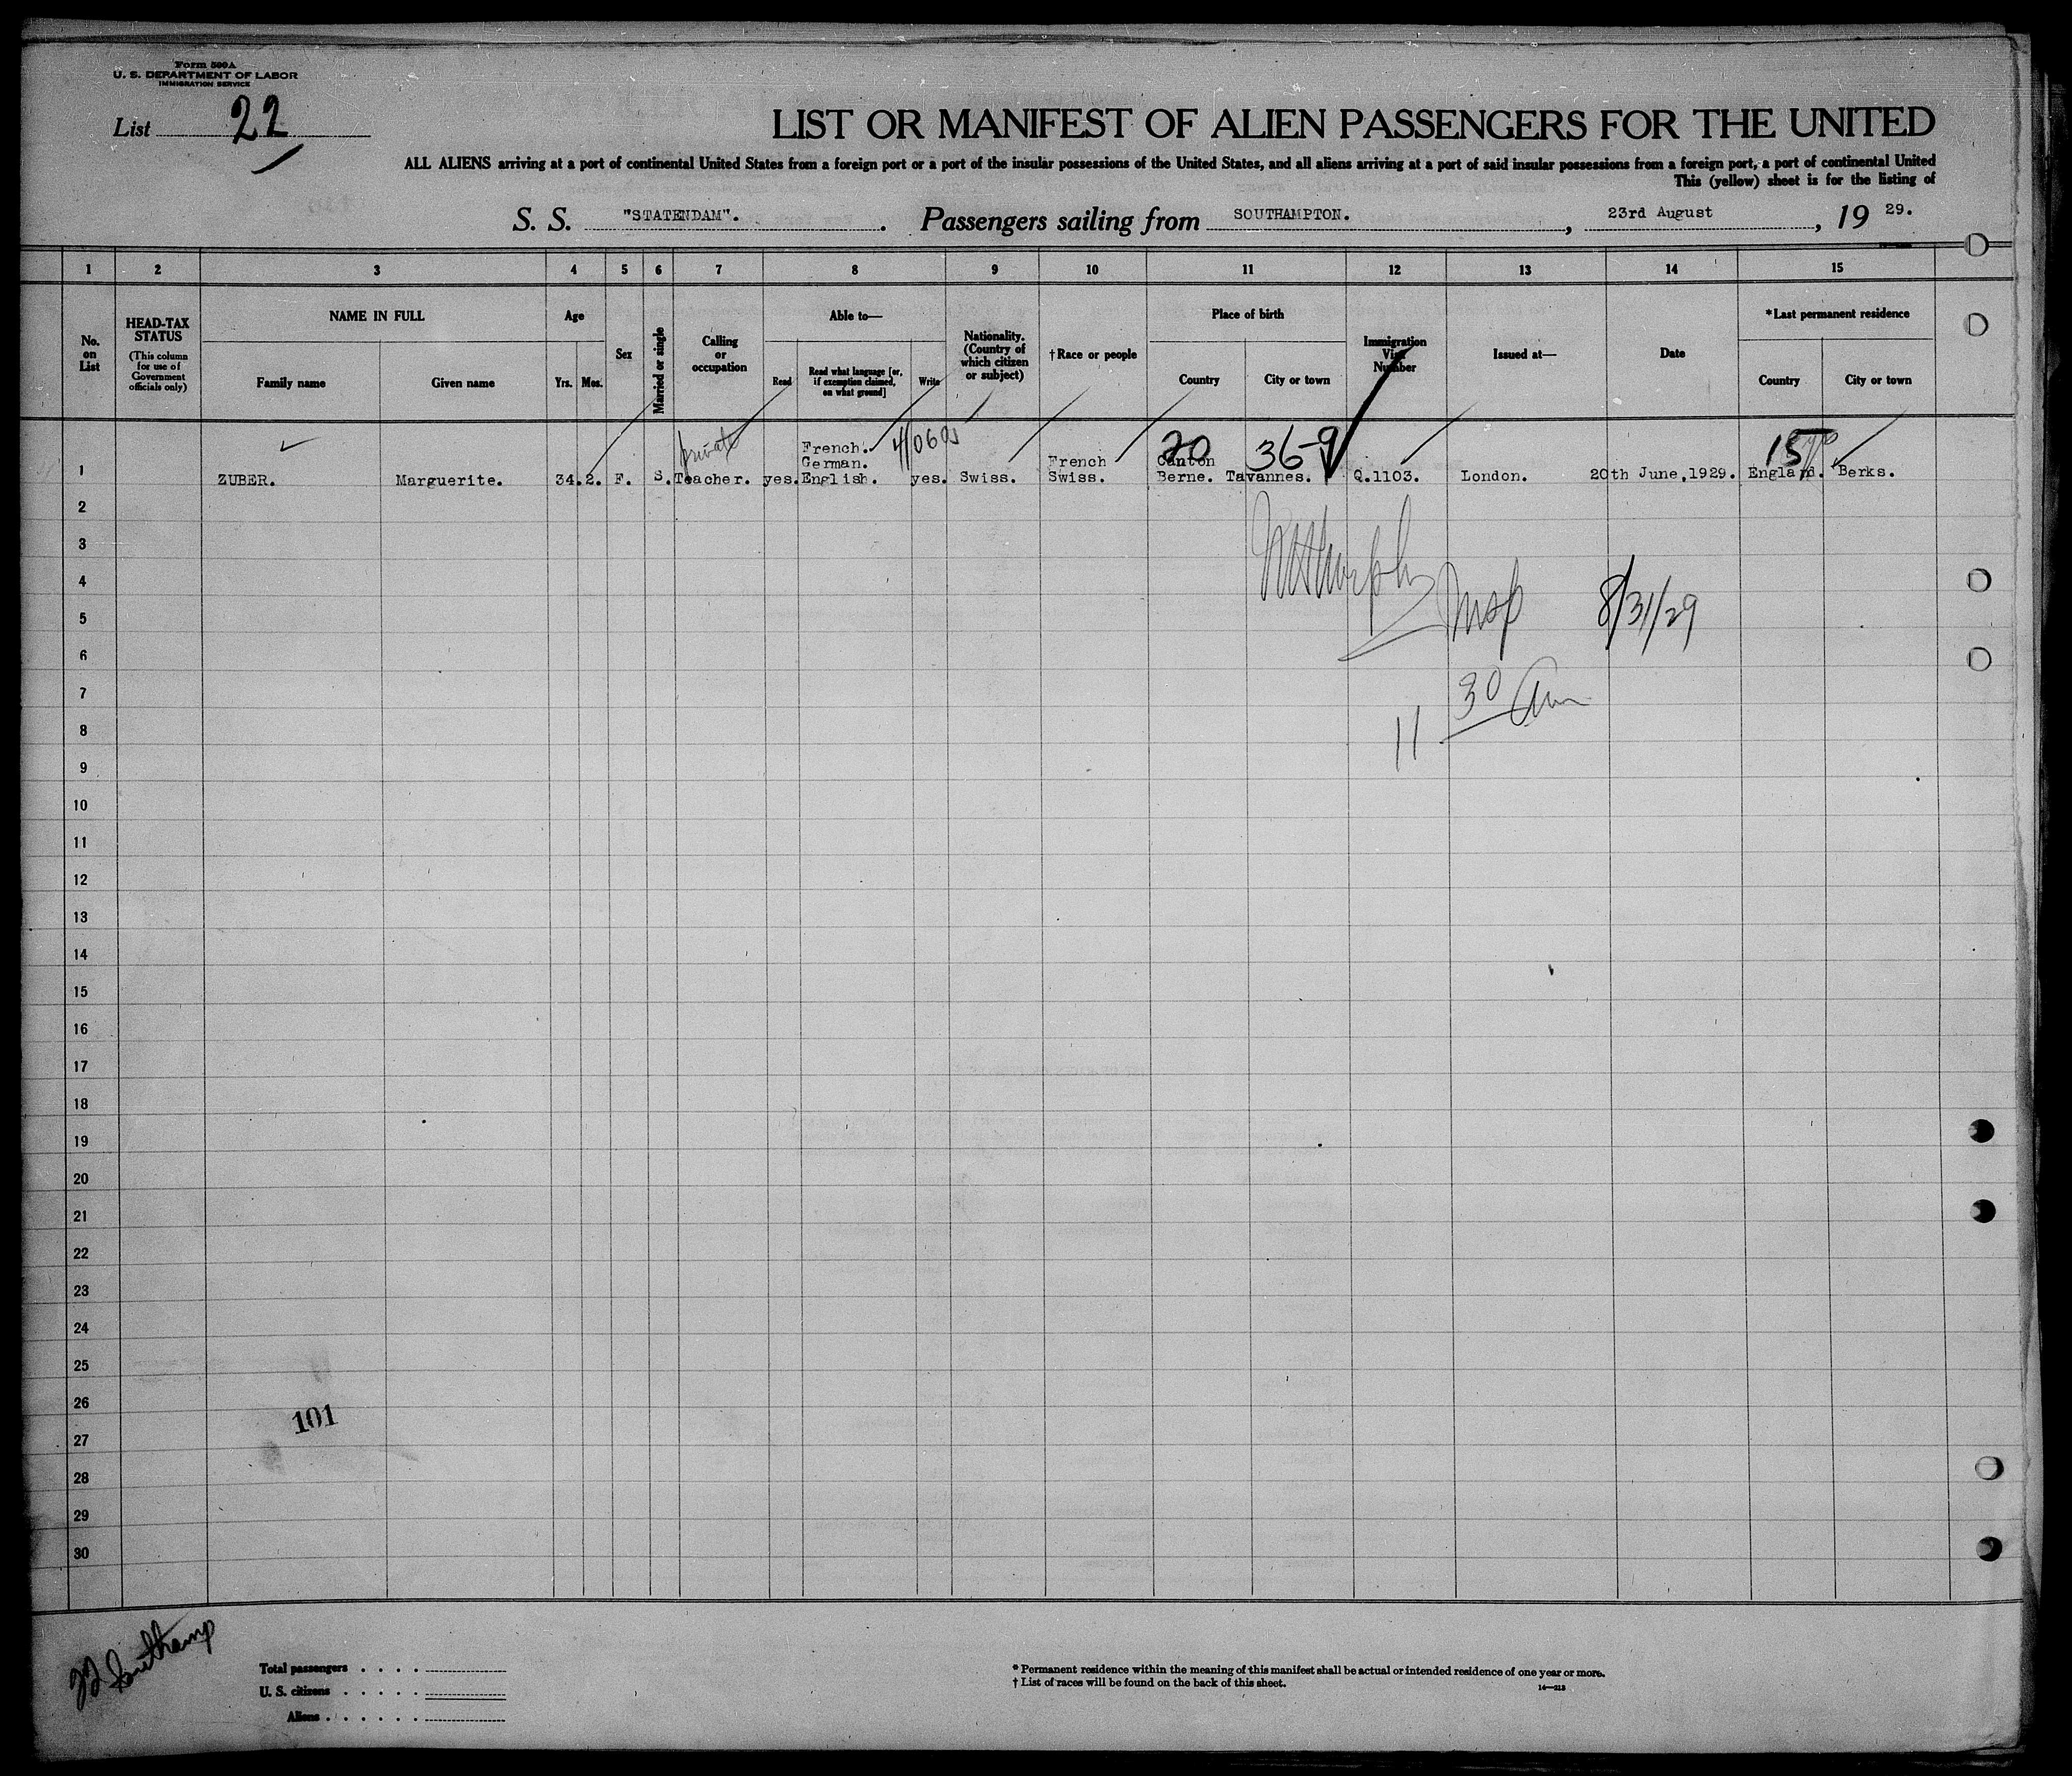 Form 500A
U. S. DEPARTMENT OF LABOR
IMMIGRATION SERVICE
List 22
LIST OR MANIFEST OF ALIEN PASSENGERS FOR THE UNITED
ALL ALIENS arriving at a port of continental United States from a foreign port or a port of the insular possessions of the United States, and all aliens arriving at a port of said insular possessions from a foreign port, a port of continental United
This (yellow) sheet is for the listing of
S. S. "STATENDAM". Passengers sailing from SOUTHAMPTON. , 23rd August , 19 29.
1 2 3 4 5 6 7 8 9 10 11 12 13 14 15
No. on List
HEAD-TAX STATUS
(This column for use of Government officials only)
NAME IN FULL
Family name
Given name
Age
Yrs. Mos.
Sex
Married or single
Calling or occupation
Able to—
Read
Read what language [or, if exemption claimed, on what ground]
Write
Nationality. (Country of which citizen or subject)
†Race or people
Place of birth
Country
City or town
Immigration Visa Number
Issued at—
Date
*Last permanent residence
Country
City or town
private 20 36-9 15
1 ZUBER. Marguerite. 34. 2. F. S. Teacher. yes. French. German. English. yes. Swiss. French Swiss. Canton Berne. Tavannes. Q.1103. London. 20th June,1929. England. Berks.
2
3
4
Insp 8/31/29
5
6
7
11 30 Am
8
9
10
11
12
13
14
15
16
17
18
19
20
21
22
23
24
25
26
101
27
28
29
30
22 Southamp
Total passengers . . . .
U. S. citizens . . . . .
Aliens . . . . . .
* Permanent residence within the meaning of this manifest shall be actual or intended residence of one year or more.
† List of races will be found on the back of this sheet.